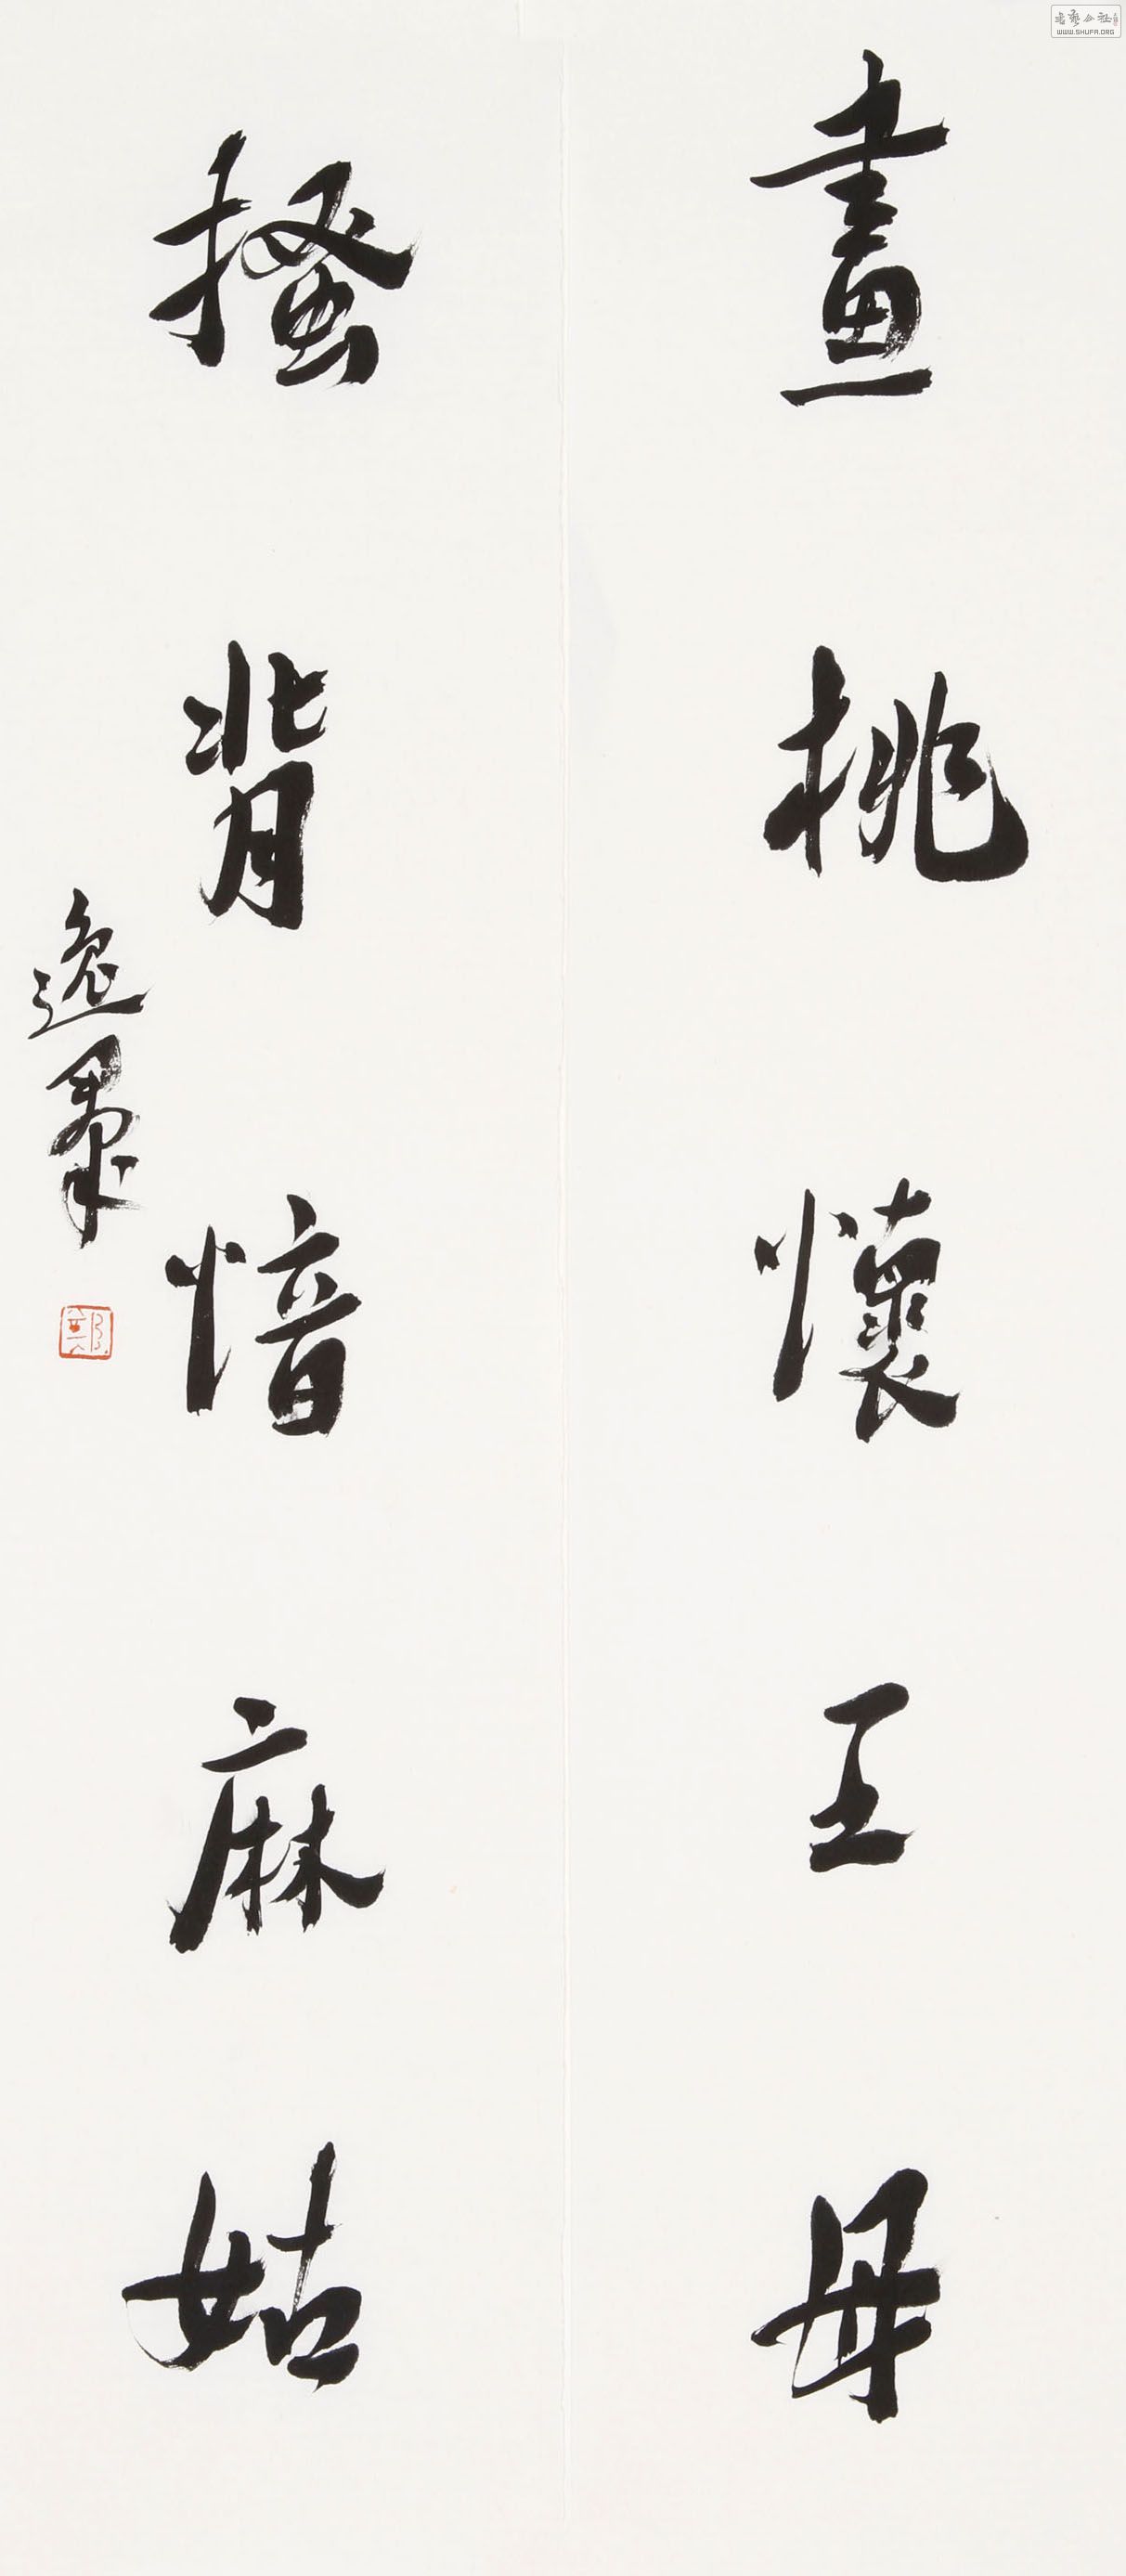 畫桃懷王母
搔背愔麻姑
逸
鄭
書藝公社
WWW.SHUFA.ORG